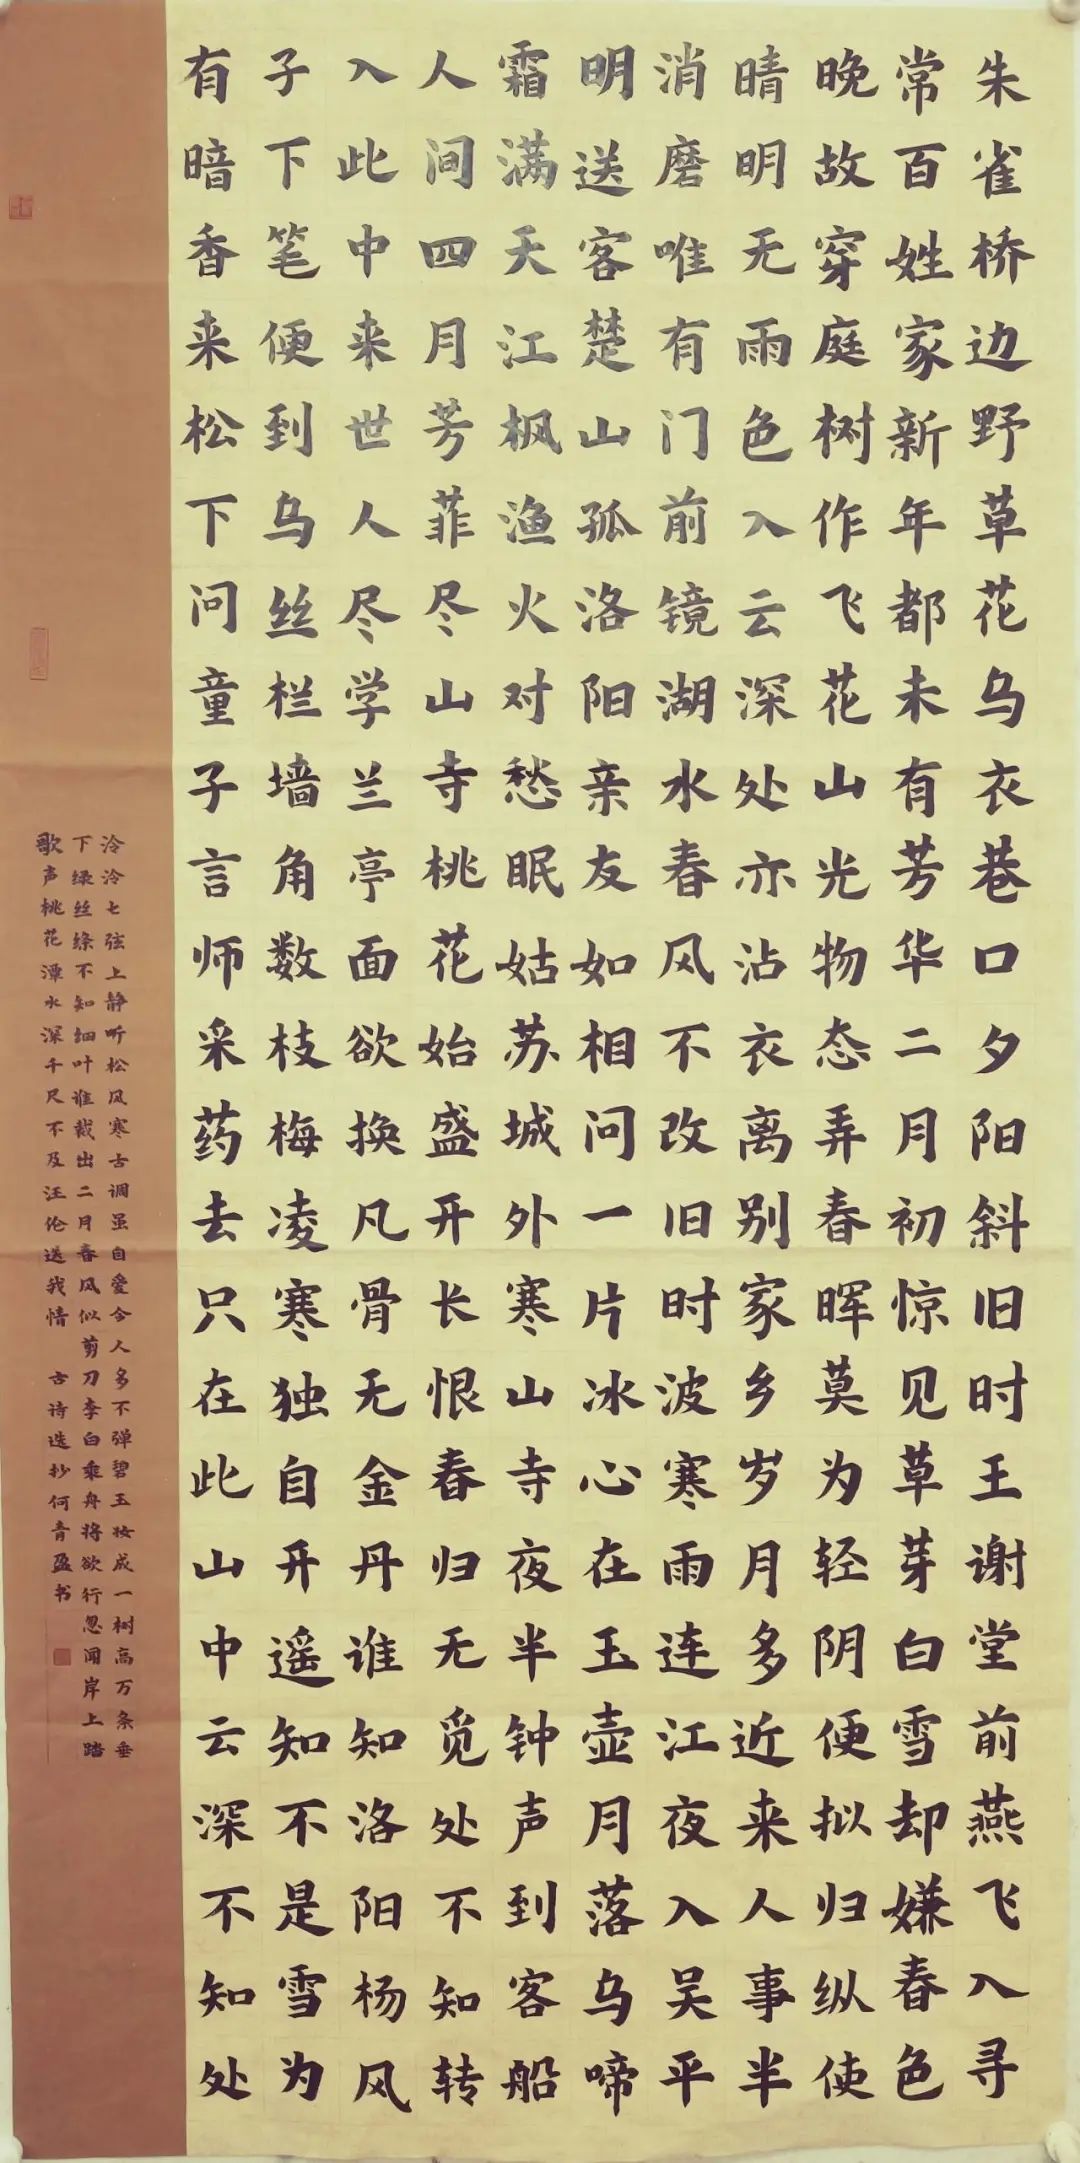 朱雀桥边野草花乌衣巷口夕阳斜旧时王谢堂前燕飞入寻
常百姓家新年都未有芳华二月初惊见草芽白雪却嫌春色
晚故穿庭树作飞花山光物态弄春晖莫为轻阴便拟归纵使
晴明无雨色入云深处亦沾衣离别家乡岁月多近来人事半
消磨唯有门前镜湖水春风不改旧时波寒雨连江夜入吴平
明送客楚山孤洛阳亲友如相问一片冰心在玉壶月落乌啼
霜满天江枫渔火对愁眠姑苏城外寒山寺夜半钟声到客船
人间四月芳菲尽山寺桃花始盛开长恨春归无觅处不知转
入此中来世人尽学兰亭面欲换凡骨无金丹谁知洛阳杨风
子下笔便到乌丝栏墙角数枝梅凌寒独自开遥知不是雪为
有暗香来松下问童子言师采药去只在此山中云深不知处
泠泠七弦上静听松风寒古调虽自爱今人多不弹碧玉妆成一树高万条垂
下绿丝绦不知细叶谁裁出二月春风似剪刀李白乘舟将欲行忽闻岸上踏
歌声桃花潭水深千尺不及汪伦送我情 古诗选抄何青盈书